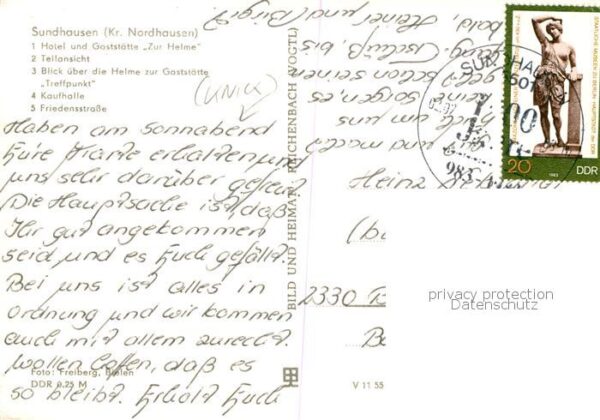 Sundhausen (Kr. Nordhausen)
1 Hotel und Gaststätte „Zur Helme"
2 Teilansicht
3 Blick über die Helme zur Gaststätte
„Treffpunkt"
4 Kaufhalle
5 Friedensstraße
(KNICK)
Haben am Sonnabend
Eure Karte erhalten und
uns sehr darüber gefreut.
Die Hauptsache ist, daß
Ihr gut angekommen
seid und es Euch gefällt.
Bei uns ist alles in
Ordnung und wir kommen
auch mit allem zurecht.
Wollen hoffen, daß es
so bleibt. Erholt Euch
gut und macht
Euch um uns
keine Sorgen, es
geht schon seinen
Gang. Tschüß, bis
bald, Heinz und (Birgit)
Foto: Freiberg, Bielen
DDR 0,25 M
BILD UND HEIMAT REICHENBACH (VOGTL)
V 11 55
Heinz
2330
SUNDHAUSEN
5501
STAATLICHE MUSEEN ZU BERLIN, HAUPTSTADT DER DDR
20
1983
DDR
privacy protection
Datenschutz